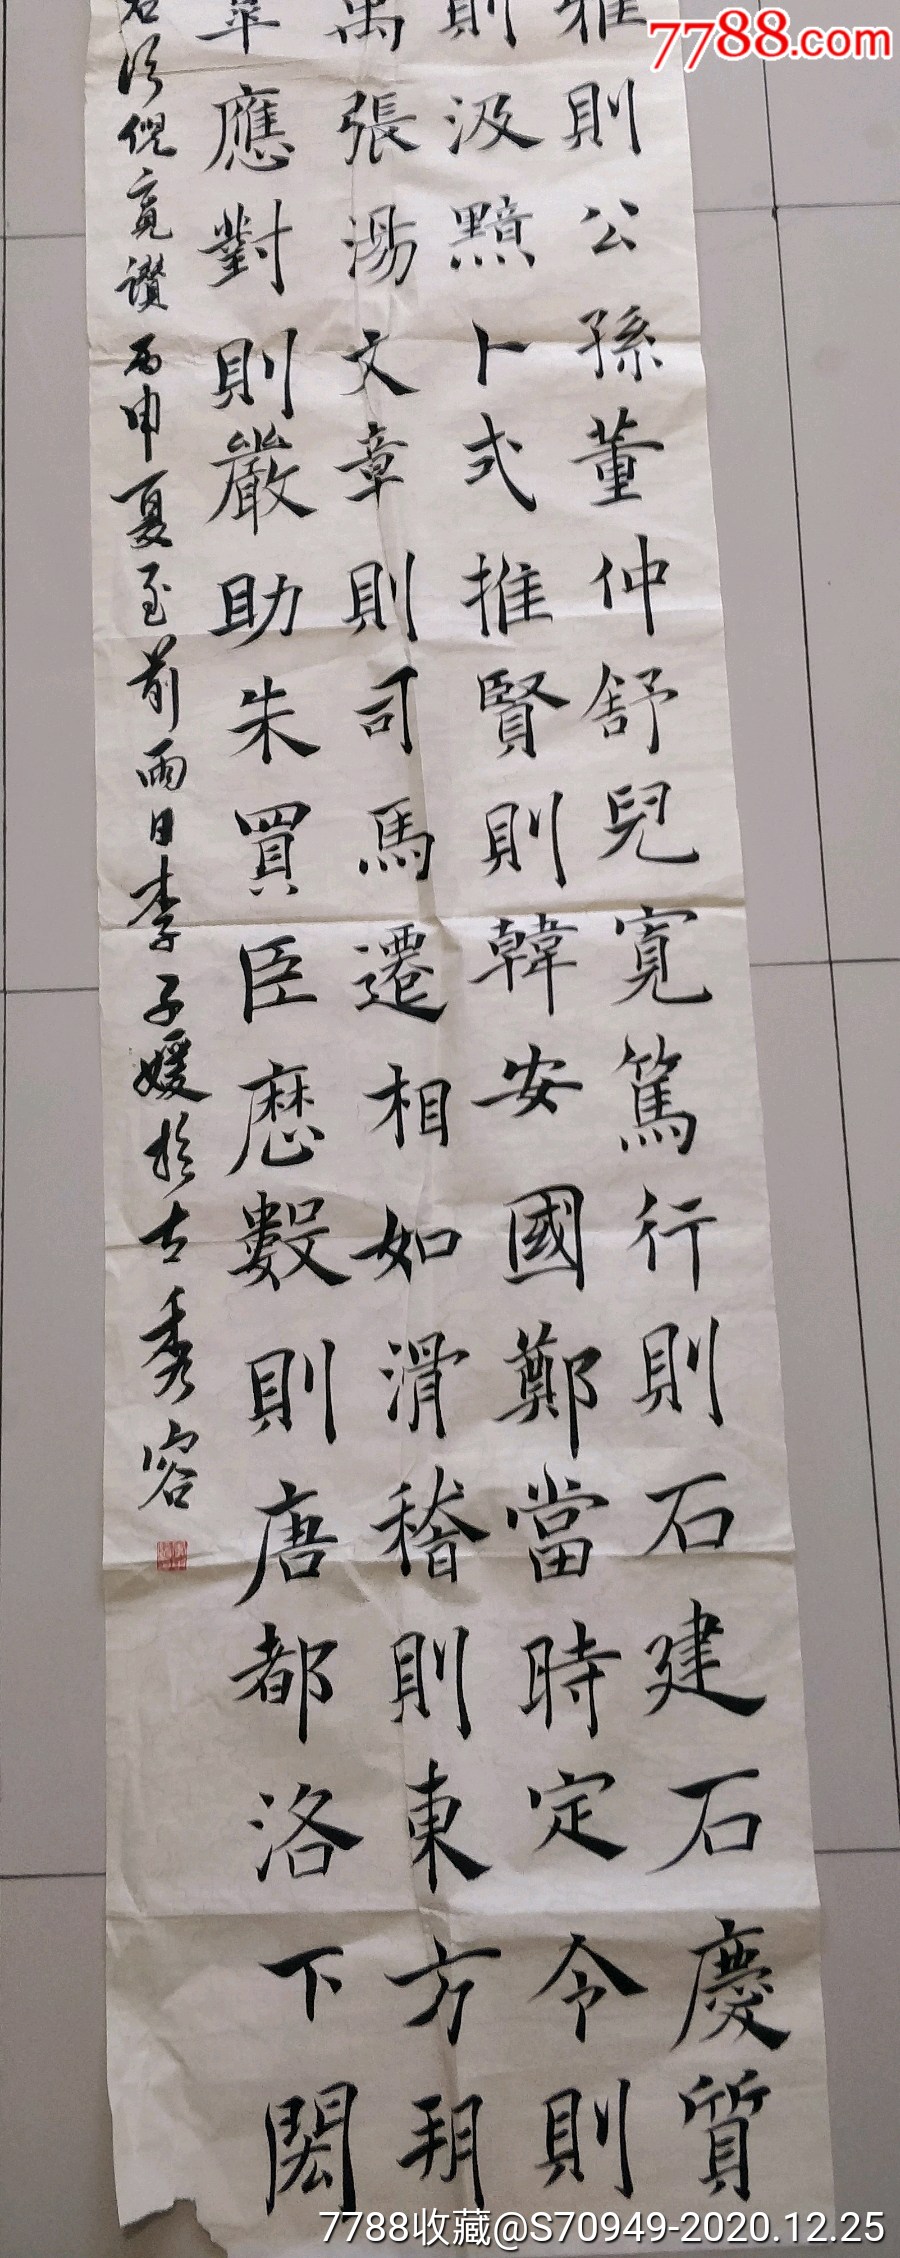 7788.com
雅則公孫董仲舒兒寬篤行則石建石慶質
則汲黯卜式推賢則韓安國鄭當時定令則
禹張湯文章則司馬遷相如滑稽則東方朔
皋應對則嚴助朱買臣厯數則唐都洛下閎
右河倪寬讚丙申夏至前兩日李子媛於古秀容
7788收藏@S70949-2020.12.25